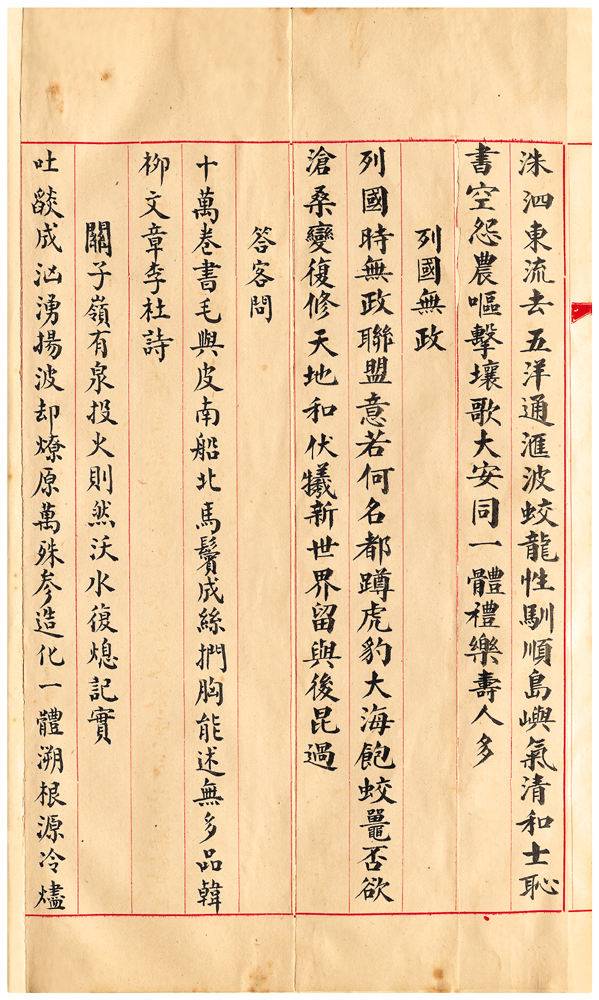 洙泗東流去五洋通滙波蛟龍性馴順島嶼氣清和士恥
書空怨農嘔擊壤歌大安同一體禮樂壽人多
列國無政
列國時無政聯盟意若何名都蹲虎豹大海飽蛟鼉否欲
滄桑變復修天地和伏犧新世界留與後昆過
答客問
十萬卷書毛與皮南船北馬鬢成絲捫胸能述無多品韓
柳文章李杜詩
關子嶺有泉投火則然沃水復熄記實
吐燄成汹湧揚波却燎原萬殊參造化一體溯根源冷燼